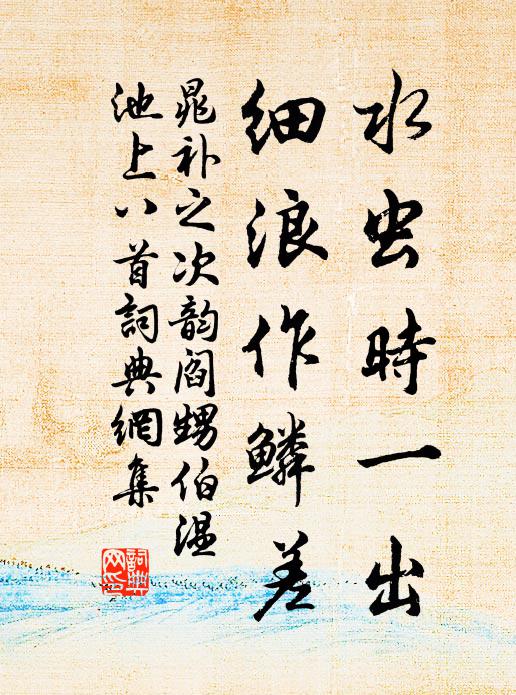 水虫時一出
細浪作鱗差
晁补之次韵阎甥伯温
池上八首詞典網集